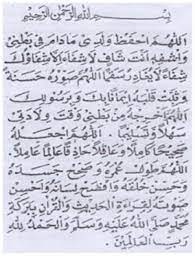 بِسْمِ اللهِ الرَّحْمٰنِ الرَّحِيْمِ
اَللّٰهُمَّ احْفَظْ وَلَدِيْ مَادَامَ فِيْ بَطْنِيْ
وَاشْفِهِ اَنْتَ شَافٍ لَا شِفَاءَ اِلَّا شِفَاؤُكَ
شِفَاءً لَا يُغَادِرُ سَقَمًا اَللّٰهُمَّ صَوِّرْهُ حَسَنَةً
وَثَبِّتْ قَلْبَهُ اِيْمَانًا بِكَ وَبِرَسُوْلِكَ
اَللّٰهُمَّ اَخْرِجْهُ مِنْ بَطْنِيْ وَقْتَ وِلَادَتِيْ
سَهْلًا وَتَسْلِيْمًا اَللّٰهُمَّ اجْعَلْهُ
صَحِيْحًا كَامِلًا وَعَاقِلًا حَاذِقًا عَالِمًا عَامِلًا
اَللّٰهُمَّ طَوِّلْ عُمُرَهُ وَصَحِّحْ جَسَدَهُ
وَحَسِّنْ خُلُقَهُ وَافْصَحْ لِسَانَهُ وَاَحْسِنْ
صَوْتَهُ لِقِرَاءَةِ الْحَدِيْثِ وَالْقُرْآنِ بِبَرَكَةِ
صَلَّى اللهُ عَلَيْهِ وَسَلَّمَ وَالْحَمْدُ لِلّٰهِ
رَبِّ الْعَالَمِيْنَ